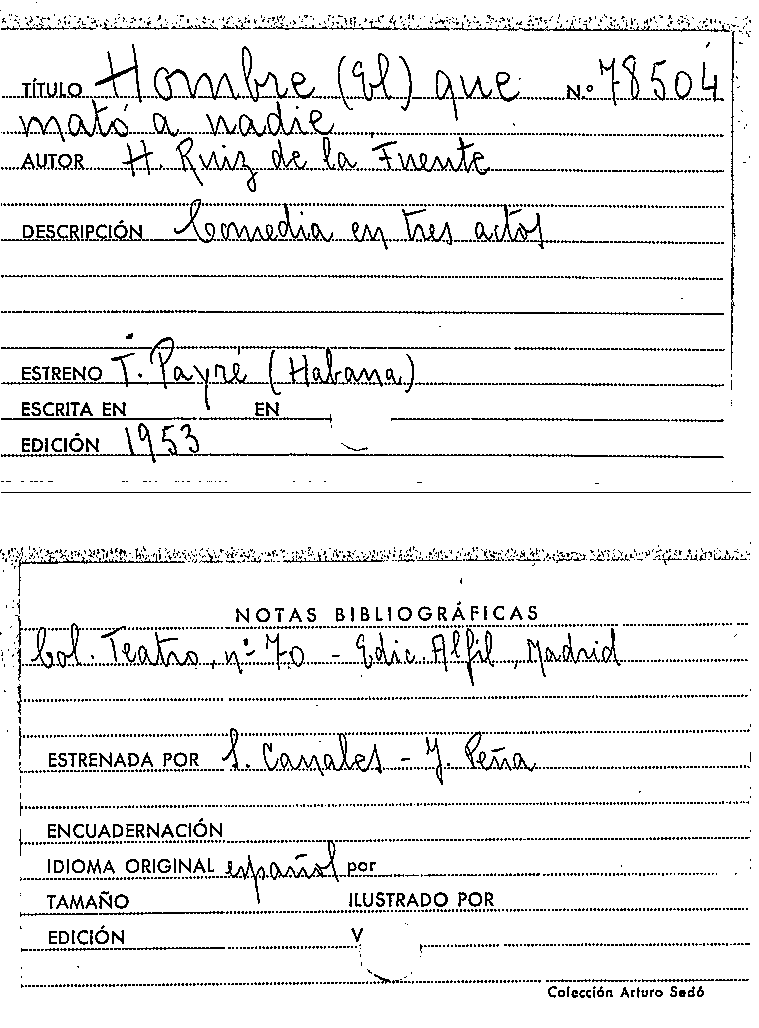 TÍTULO Hombre (El) que N.º 78504
mató a nadie.
AUTOR H. Ruiz de la Fuente
DESCRIPCIÓN Comedia en tres actos
ESTRENO T. Payré (Habana)
ESCRITA EN EN
EDICIÓN 1953
NOTAS BIBLIOGRÁFICAS
Col. Teatro, nº 70 - Edic. Alfil, Madrid
ESTRENADA POR S. Canales - J. Peña
ENCUADERNACIÓN
IDIOMA ORIGINAL español por
TAMAÑO ILUSTRADO POR
EDICIÓN V
Colección Arturo Sedó